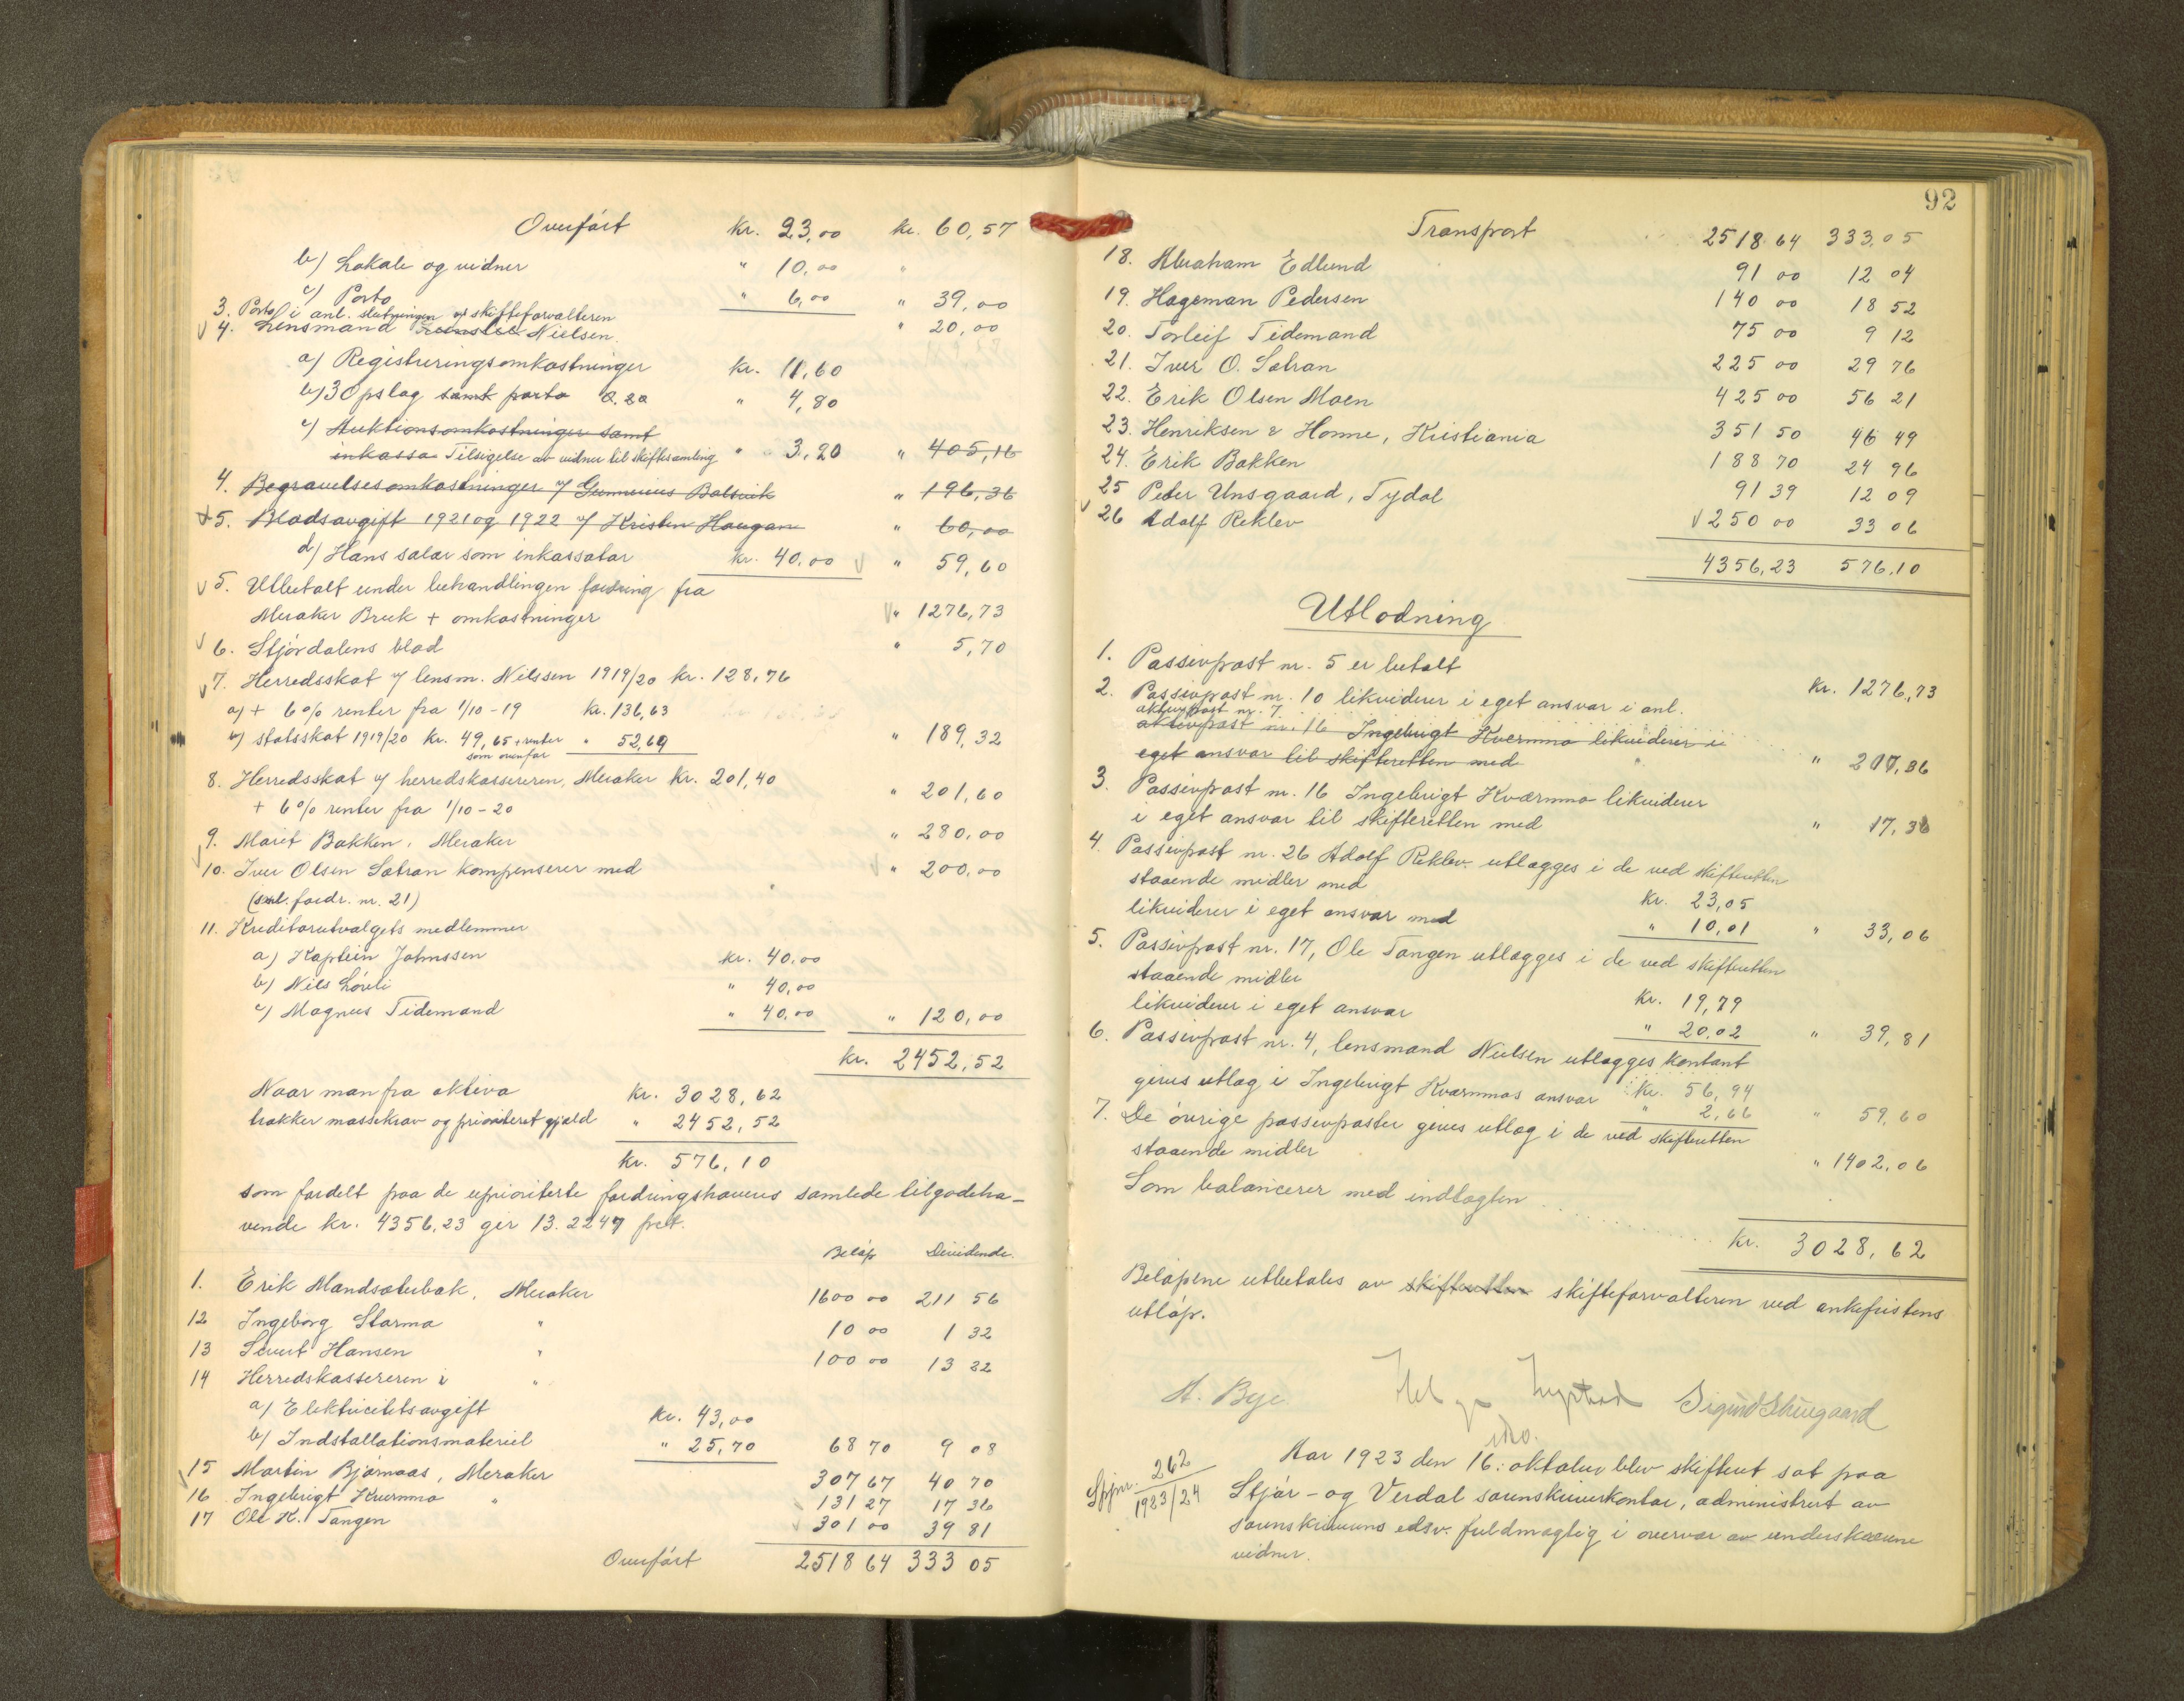 Overført kr. 23,00 kr. 60,57
b) Lokale og vidner " 10,00 "
c) Porto " 6,00 " 39,00
3. Porto i anl. slutningen v/ skifteforvalteren " 20,00
4. Lensmand Nielsen.
a) Registreringsomkostninger kr. 11,60
b) 3 Opslag samt porto 0.20 " 4,80
c) Auktionsomkostninger samt
inkasso Tilsigelse av vidner til skiftesamling " 3,20 " 405,16
4. Begravelsesomkostninger v/ Gunnerius Balsvik " 196,36
+5. Bladsavgift 1921 og 1922 v/ Kristen Haugan " 60,00
d) Hans salær som inkassator kr. 40,00 " 59,60
5. Utbetalt under behandlingen fordring fra
Meraker Bruk + omkostninger " 1276,73
6. Stjørdalens blad " 5,70
7. Herredsskat v/ lensm. Nilssen 1919/20 kr. 128,76
a) + 6% renter fra 1/10-19 kr. 136,63
b) statsskat 1919/20 kr. 49,65 + renter " 52,69 " 189,32
som ovenfor
8. Herredsskat v/ herredskassereren, Meraker kr. 201,40
+ 6% renter fra 1/10-20 " 201,60
9. Marit Bakken, Meraker " 280,00
10. Iver Olsen Sætran kompenserer med " 200,00
(sml. fordr. nr. 21) "
11. Kreditorutvalgets medlemmer
a) Kaptein Johnssen kr. 40,00
b) Nils Løvli " 40,00
c) Magnus Tidemand " 40,00 " 120,00
kr. 2452,52
Naar man fra aktiva kr. 3028,62
trækker massekrav og prioritert gjæld " 2452,52
kr. 576,10
som fordelt paa de uprioriterte fordringshaveres samlede tilgodeha-
vende kr. 4356,23 gir 13.2247 pct.
Beløp Dividende.
1. Erik Mandsæterbak, Meraker 1600 00 211 56
12 Ingeborg Starmo " 10 00 1 32
13 Sivert Hansen " 100 00 13 22
14 Herredskassereren i "
a) Elektricitetsavgift kr. 43,00
b) Indstallationsmateriel " 25,70 68 70 9 08
15 Martin Bjørnaas, Meraker 307 67 40 70
16 Ingebrigt Kvernmo " 131 27 17 36
17 Ole K. Tangen 301 00 39 81
Overført 2518 64 333 05
92
Transport 2518 64 333,05
18. Abraham Edlund 91 00 12 04
19. Hageman Pedersen 140 00 18 52
20. Torleif Tidemand 75 00 9 12
21. Iver O. Sætran 225 00 29 76
22. Erik Olsen Moen 425 00 56 21
23. Henriksen & Honne, Kristiania 351 50 46 49
24. Erik Bakken 188 70 24 96
25 Peder Unsgaard, Tydal 91 39 12 09
26 Adolf Reklev 250 00 33 06
4356,23 576,10
Utlodning
1. Passivpost nr. 5 er betalt kr. 1276,73
2. Passivpost nr. 10 likviderer i eget ansvar i anl.
aktivpost nr. 7
aktivpost nr. 16 Ingebrigt Kvernmo likviderer i
eget ansvar til skifteretten med " 200,00
3. Passivpost nr. 16 Ingebrigt Kværnmo likviderer
i eget ansvar til skifteretten med " 17,36
4. Passivpost nr. 26 Adolf Reklev utlægges i de ved skifteretten
staaende midler med kr. 23,05
likviderer i eget ansvar med " 10,01 " 33,06
5. Passivpost nr. 17, Ole Tangen utlægges i de ved skifteretten
staaende midler kr. 19,79
likviderer i eget ansvar " 20,02 " 39,81
6. Passivpost nr. 4, lensmand Nielsen utlægges kontant
kr. 56,94
gives utlæg i Ingebrigt Kværnmos ansvar " 2,66 " 59,60
7. De øvrige passivposter gives utlæg i de ved skifteretten
staaende midler " 1402,06
Som balancerer med indtægten kr. 3028,62
Beløpene utbetales av skifteretten skifteforvalteren ved ankefristens
utløp.
A. Bye Helge Sigurd Skiugaard
Aar 1923 den 16. oktober blev skifteret sat paa
Spjnr. 262 1923/24
Stjør- og Verdal sorenskriverkontor, administrert av
sorenskriverens edsv. fuldmægtig i overvær av underskrevne
vidner.